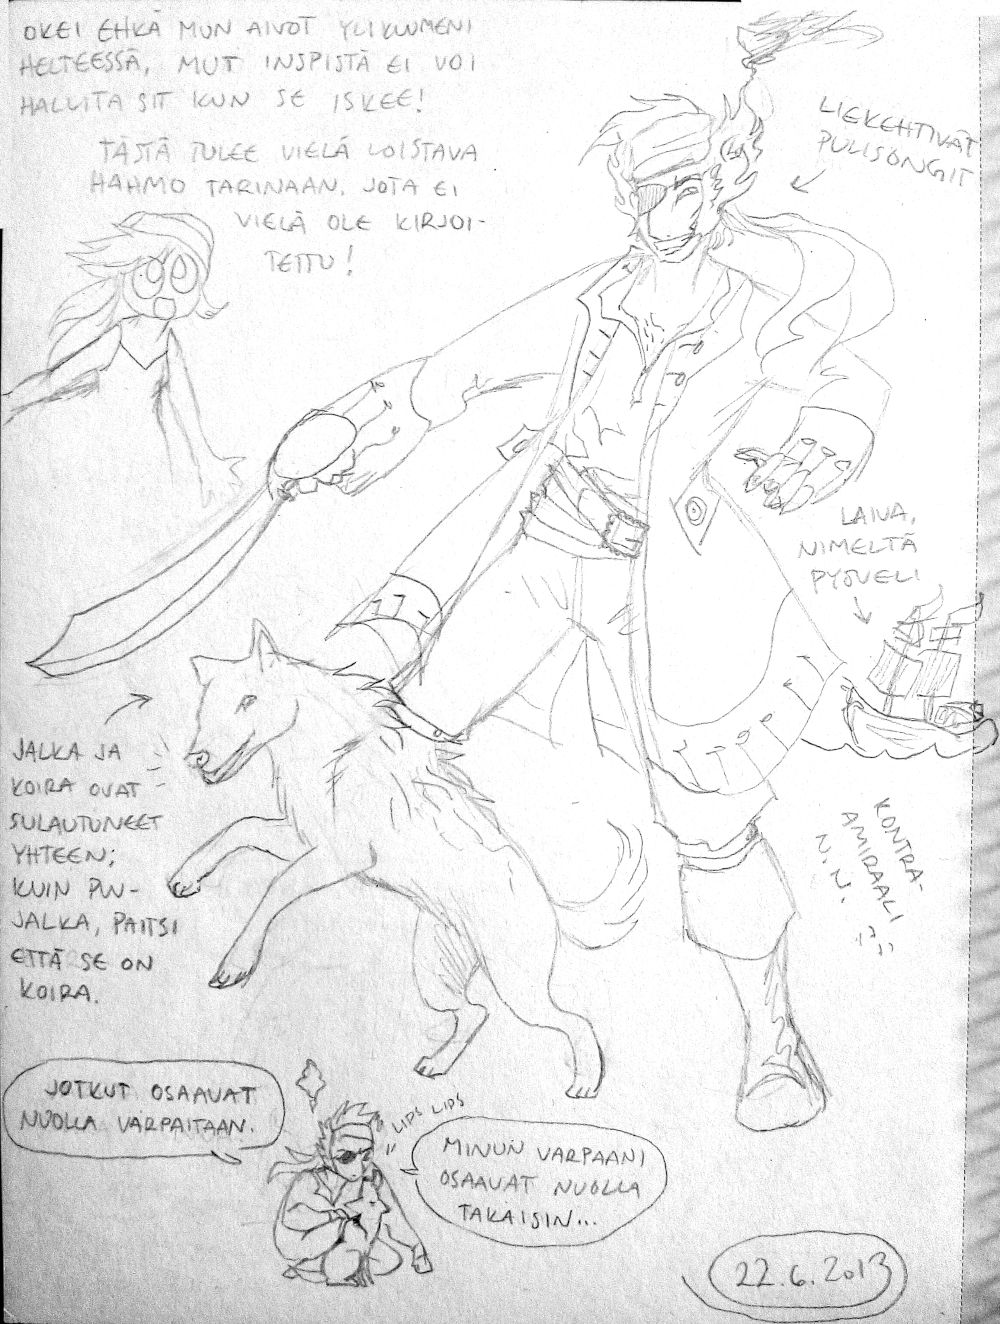 OKEI EHKÄ MUN AIVOT YLIKUUMENI
HELTEESSÄ, MUT INSPISTÄ EI VOI
HALLITA SIT KUN SE ISKEE!
TÄSTÄ TULEE VIELÄ LOISTAVA
HAHMO TARINAAN, JOTA EI
VIELÄ OLE KIRJOI-
TETTU!
LIEKEHTIVÄT
PULISONGIT
LAIVA,
NIMELTÄ
PYÖVELI
JALKA JA
KOIRA OVAT
SULAUTUNEET
YHTEEN;
KUIN PUU-
JALKA, PAITSI
ETTÄ SE ON
KOIRA.
KONTRA-
AMIRAALI
N.N.
JOTKUT OSAAVAT
NUOLLA VARPAITAAN.
LIPS LIPS
MINUN VARPAANI
OSAAVAT NUOLLA
TAKAISIN...
22.6.2013